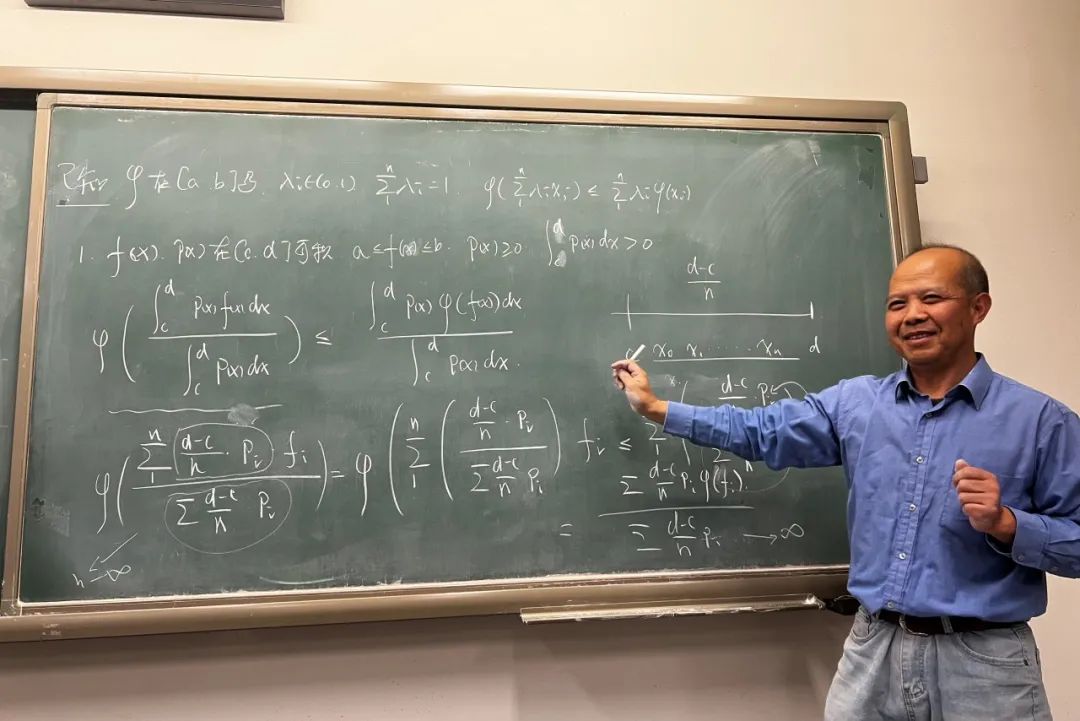 已知 φ在[a.b]凸. λi∈(0.1) ∑₁ⁿλi=1. φ(∑₁ⁿλixi)≤∑₁ⁿλiφ(xi)
1. f(x). p(x)在[c.d]可积 a≤f(x)≤b. p(x)≥0. ∫_c^d p(x)dx>0
φ(∫_c^d p(x)f(x)dx / ∫_c^d p(x)dx) ≤ ∫_c^d p(x)φ(f(x))dx / ∫_c^d p(x)dx.
(d-c)/n
x₀ x₁ ...... xₙ d
φ(∑₁ⁿ (d-c)/n · pi fi / ∑ (d-c)/n pi) = φ(∑₁ⁿ ((d-c)/n · pi / ∑ (d-c)/n pi) fi ≤
= ∑ (d-c)/n pi φ(fi) / ∑ (d-c)/n pi → ∞
n → ∞